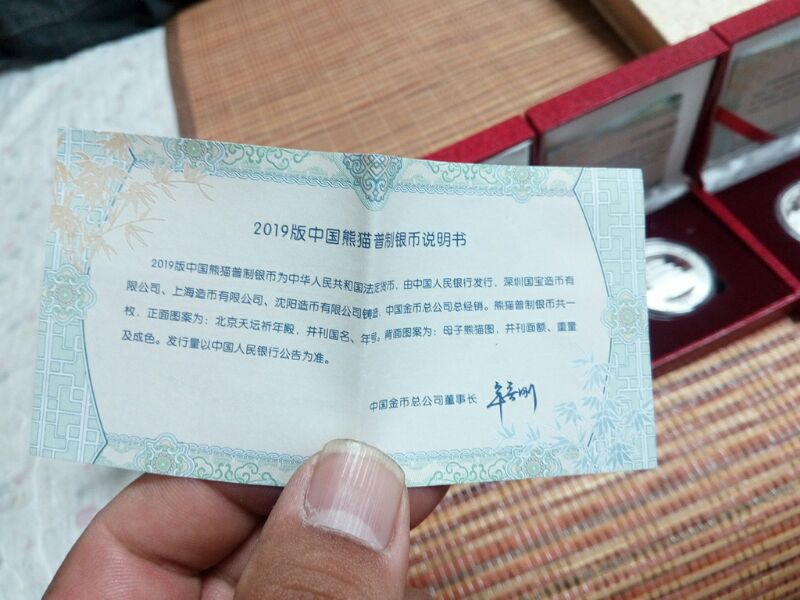 2019版中国熊猫普制银币说明书
2019版中国熊猫普制银币为中华人民共和国法定货币，由中国人民银行发行，深圳国宝造币有
限公司、上海造币有限公司、沈阳造币有限公司铸造，中国金币总公司总经销。熊猫普制银币共一
枚，正面图案为：北京天坛祈年殿，并刊国名、年号。背面图案为：母子熊猫图，并刊面额、重量
及成色。发行量以中国人民银行公告为准。
中国金币总公司董事长